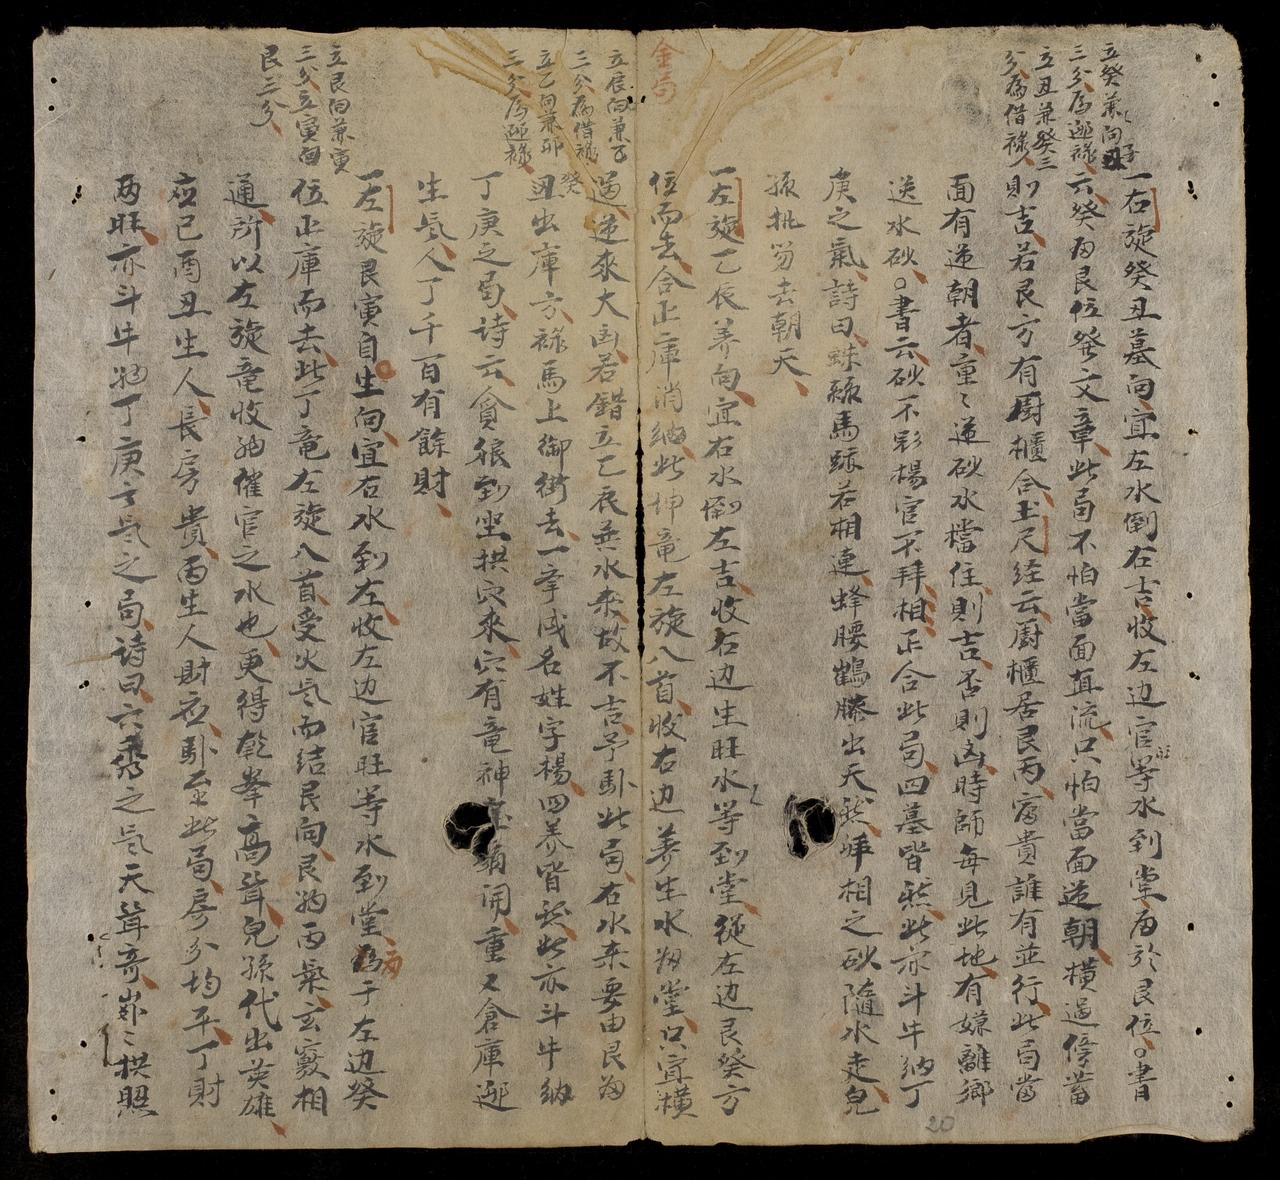 立癸兼向丑
三分為逃禄
立丑兼癸三
分為借禄
一右旋癸丑墓向宜左水倒右吉收左边官等水到堂甫於艮位書
云癸甫艮位發文章此局不怕當面直流只怕當面逆朝橫過停當
則吉若艮方有厨櫃合玉尺经云厨櫃居艮丙富貴誰有並行此局當
面有逆朝者重〻逆砂水檔住則吉否則凶時師每見此地有嫌離鄉
送水砂書云砂不彩楊官不拜相正合此局四墓皆然此亦斗牛納丁
庚之氣詩曰蛛絲馬跡若相連蜂腰鶴膝出天然拜相之砂隨水走兒
孫批笏去朝天
金局
立辰向兼乙
三分為借禄
立乙向兼卯
三分為逃禄
一左旋乙辰养向宜右水倒左吉收右边生旺水等到堂從左边艮癸方
位而去合正庫消納此坤竜左旋八首收右边养生水朝堂只宜橫
過逆來大凶若錯立乙辰兼水來故不吉予卦此局右水來要由艮甫
癸丑出庫方禄馬上御街去一舉成名姓字楊四养皆然此亦斗牛納
丁庚之局诗云貪狼到坐拱穴來穴有竜神開重又倉庫逃
生氣人丁千百有餘財
立艮向兼寅
三分立寅向
艮三分
一左旋艮寅自生向宜右水到左收左边官旺等水到堂甫于左边癸
位正庫而去此丁竜左旋八首受火氣而结艮向艮納丙氣玄竅相
通所以左旋竜收納催官之水也更得乾峯高聳兒孫代出英雄
應已酉丑生人長房貴丙生人財应卦至此局房分均平丁財
两旺亦斗牛納丁庚之氣之局诗曰六秀之氣天聳奇峯〻拱照
20